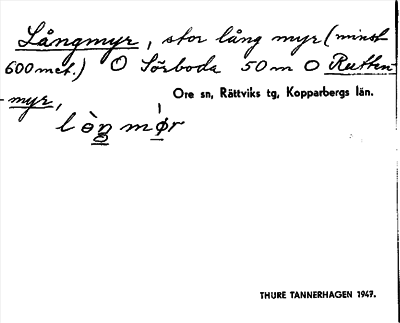 Långmyr, stor lång myr (minst
600 met.) O Sörboda 50 m O Rutten-
myr,
Ore sn, Rättviks tg, Kopparbergs län.
THURE TANNERHAGEN 1947.